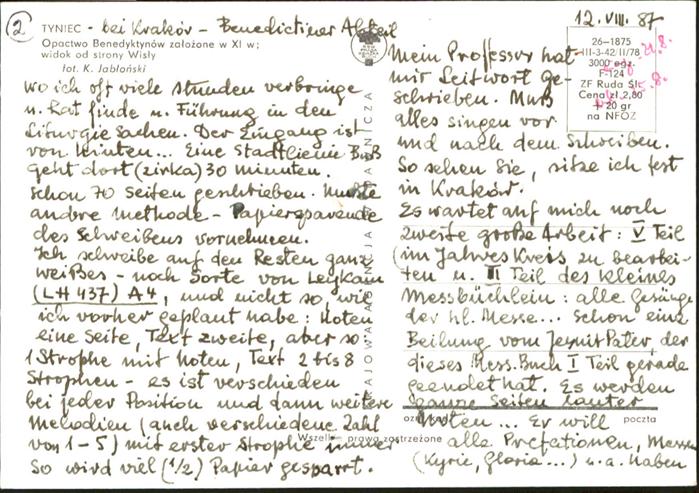 ② TYNIEC - bei Kraków - Benedictiner Abteil
Opactwo Benedyktynów założone w XI w;
widok od strony Wisły
fot. K. Jabłoński
wo ich oft viele stunden verbringe
u. Rat finde u. Führung in den
Liturgie Sachen. Der Eingang ist
von hinten... Eine Stadtlienie Buß
geht dort (zirka) 30 minuten.
schon 70 Seiten geschrieben. Mußte
andre Methode - Papiersparende
des Schreibens vornehmen.
Ich schreibe auf den Resten ganz
weißes - noch Sorte von Leykam
(LH 437) A4, und nicht so, wie
ich vorher geplant habe: Noten
eine Seite, Text zweite, aber so:
1 Strophe mit Noten, Text 2 bis 8
Strophen - es ist verschieden
bei jeder Position und dann weitere
Melodien (auch verschiedene Zahl
von 1-5) mit erster Strophe immer
So wird viel (1/2) Papier gesparrt.
KRAJOWA AGENCJA
Wszelkie prawa zastrzeżone
12. VIII. 87
26-1875
III-3-42/II/78
3000 egz.
F-124
ZF Ruda Śl.
Cena zł 2,80
+ 20 gr
na NFOZ
21.8.
.8.
Mein Proffessor hat
mir Leitwort ge-
schrieben. Muß
alles singen vor
und nach dem Schreiben.
So sehen Sie, sitze ich fest
in Kraków.
Es wartet auf mich noch
zweite große Arbeit: V Teil
(im Jahres Kreis zu bearbei-
ten u. III Teil des kleines
Messbüchlein: alle gesänge
der hl. Messe... schon eine
Beilung vom Jesuit Pater, der
dieses Mess. Buch I Teil gerade
geendet hat. Es werden
ganze Seiten lauter
Noten... Er will
poczta
alle Prefationen, Messen
(Kyrie, Gloria...) u. a. haben